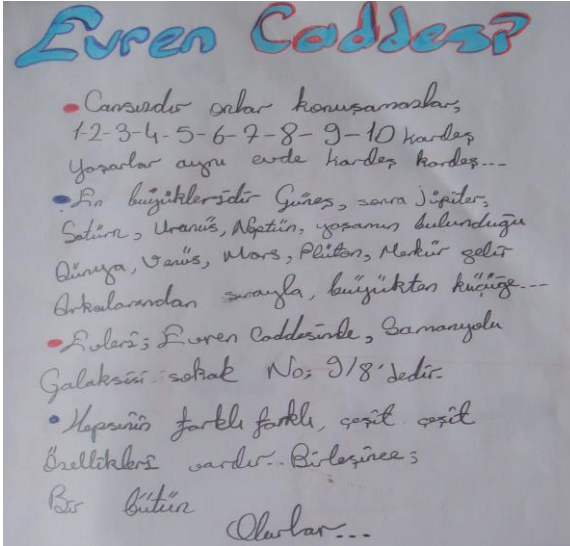 Evren Caddesi
• Cansızdır onlar konuşamazlar,
1-2-3-4-5-6-7-8-9-10 kardeş
Yaşarlar aynı evde kardeş kardeş...
• En büyükleridir Güneş, sonra Jüpiter,
Satürn, Uranüs, Neptün, yaşamın bulunduğu
Dünya, Venüs, Mars, Plüton, Merkür gelir
Arkalarından sırayla, büyükten küçüğe...
• Evleri; Evren Caddesinde, Samanyolu
Galaksisi sokak No: 9/8'dedir.
• Hepsinin farklı farklı, çeşit çeşit
Özellikleri vardır.. Birleşince;
Bir bütün
Olurlar...